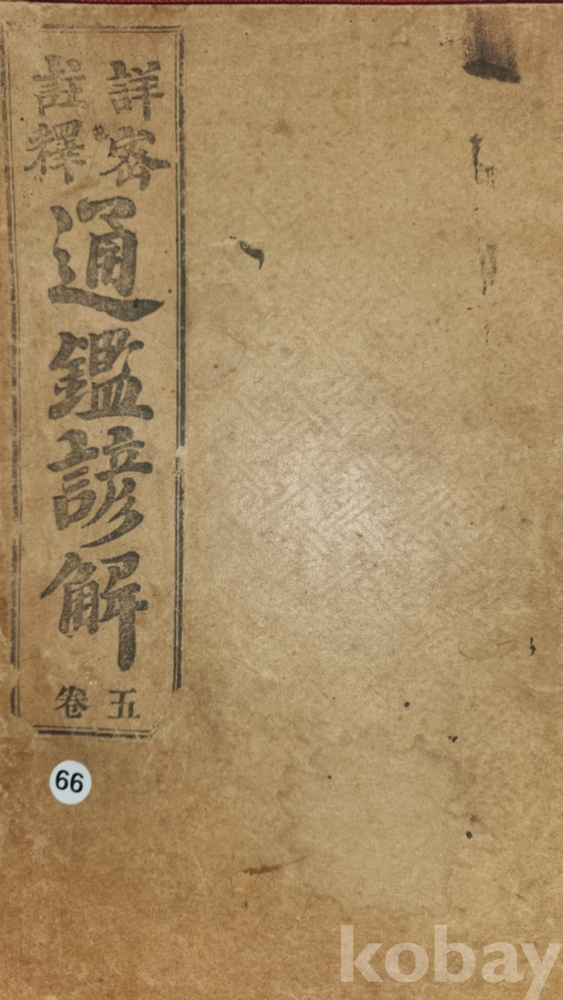 詳密
註釋
通鑑諺解
卷五
66
kobay